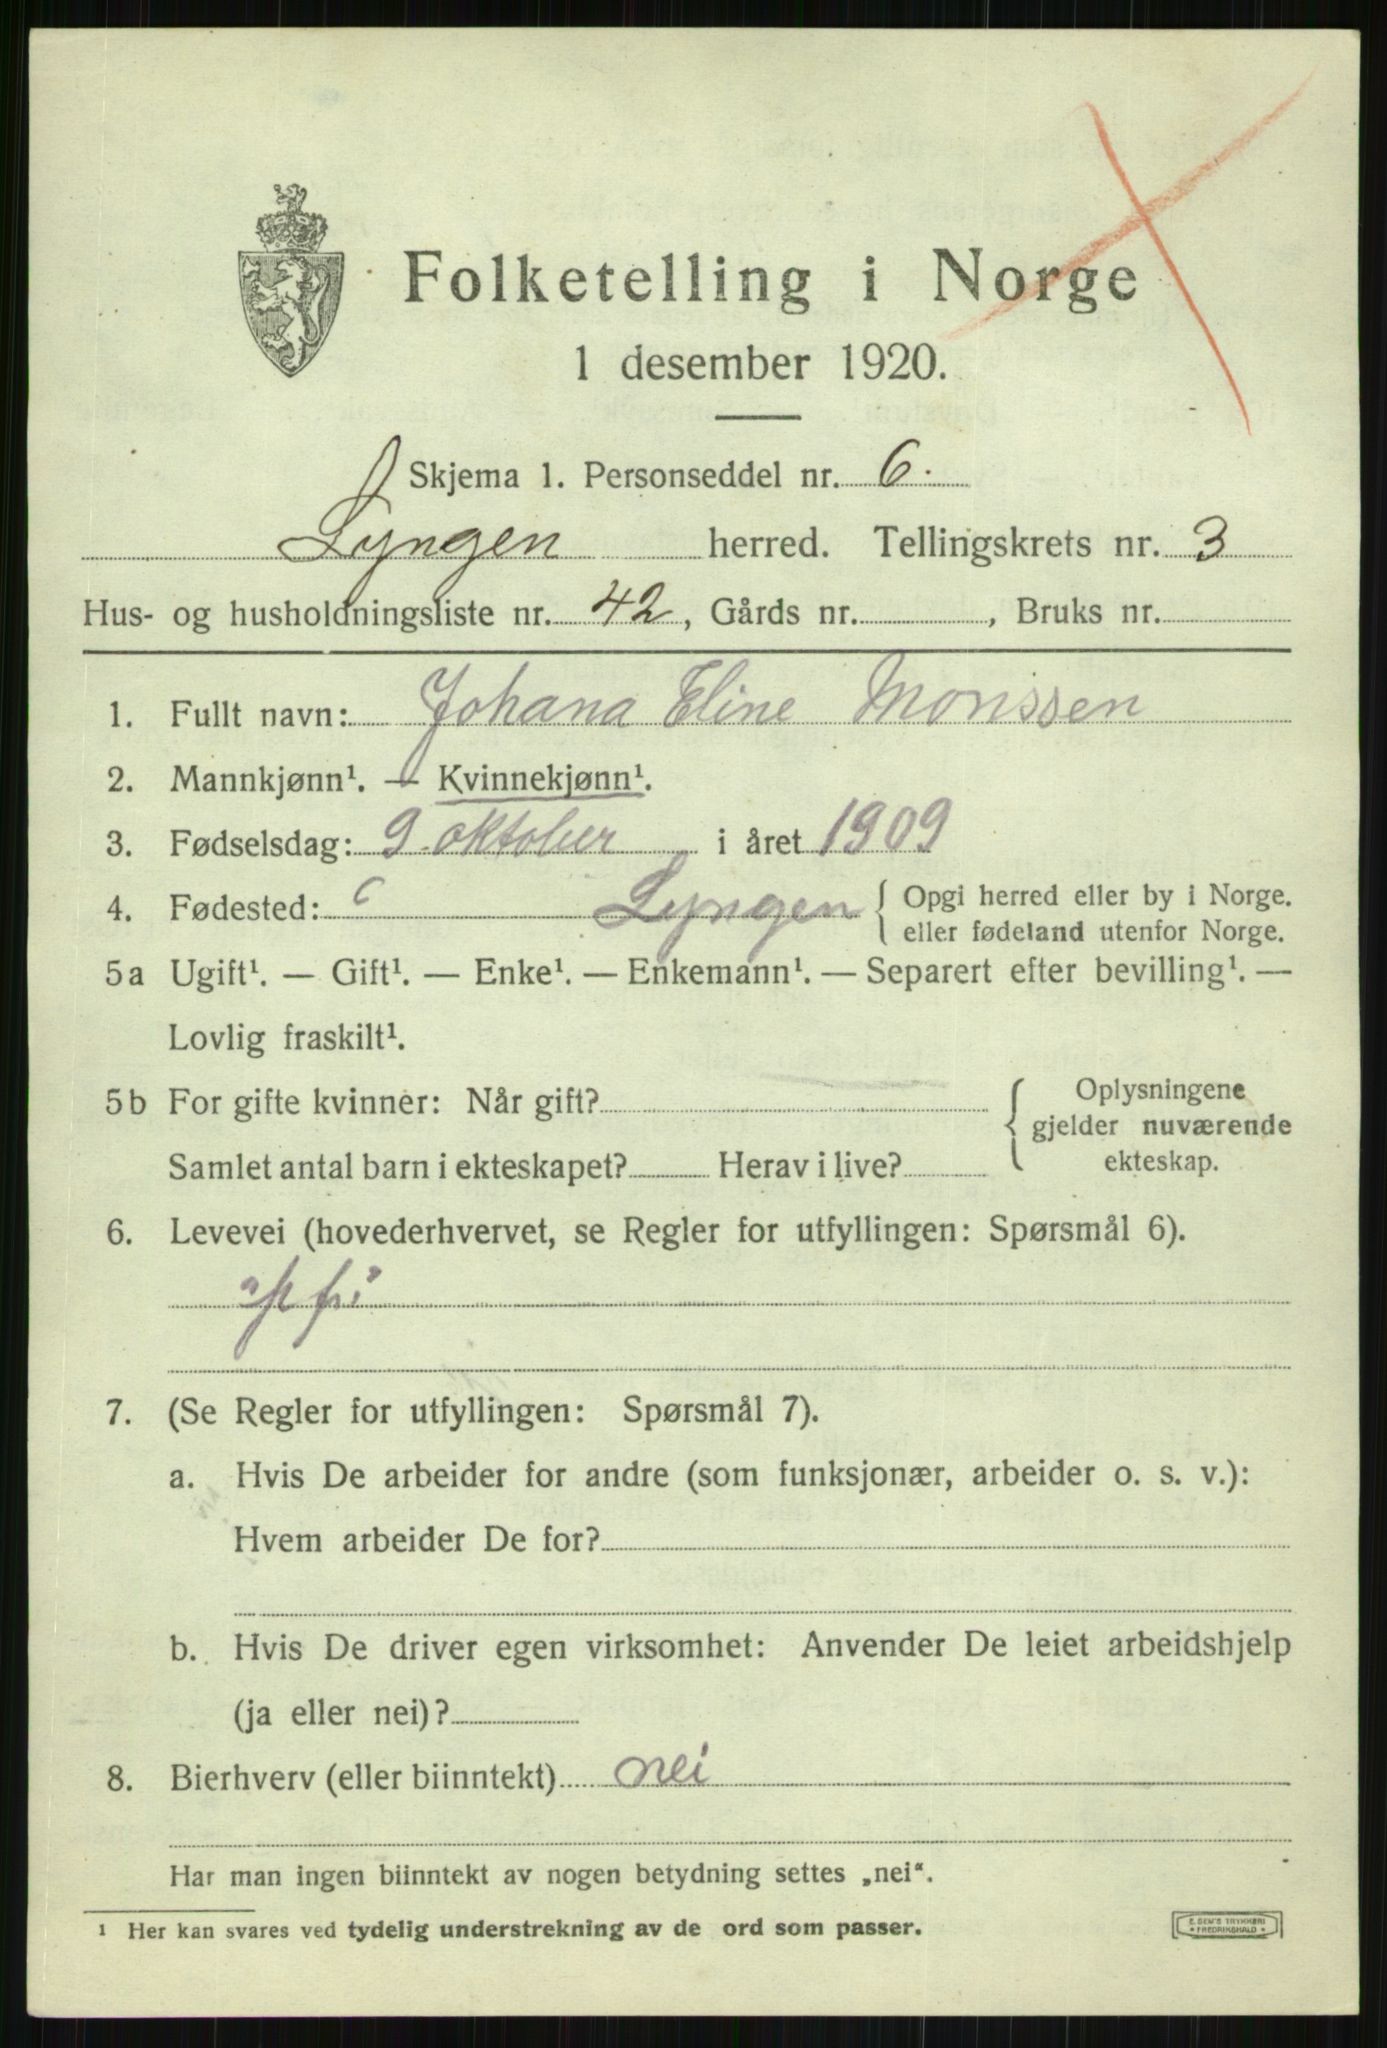 Folketelling i Norge
1 desember 1920.
Skjema 1. Personseddel nr. 6.
Lyngen herred. Tellingskrets nr. 3
Hus- og husholdningsliste nr. 42, Gårds nr. , Bruks nr.
1. Fullt navn: Johana Eline Monssen
2. Mannkjønn¹. — Kvinnekjønn¹.
3. Fødselsdag: 9 oktober i året 1909
4. Fødested: Lyngen { Opgi herred eller by i Norge.
eller fødeland utenfor Norge.
5a Ugift¹. — Gift¹. — Enke¹. — Enkemann¹. — Separert efter bevilling¹. —
Lovlig fraskilt¹.
5b For gifte kvinner: Når gift? { Oplysningene
gjelder nuværende
Samlet antal barn i ekteskapet? Herav i live? ekteskap.
6. Levevei (hovederhvervet, se Regler for utfyllingen: Spørsmål 6).
7. (Se Regler for utfyllingen: Spørsmål 7).
a. Hvis De arbeider for andre (som funksjonær, arbeider o. s. v.):
Hvem arbeider De for?
b. Hvis De driver egen virksomhet: Anvender De leiet arbeidshjelp
(ja eller nei)?
8. Bierhverv (eller biinntekt) nei
Har man ingen biinntekt av nogen betydning settes „nei“.
¹ Her kan svares ved tydelig understrekning av de ord som passer.
E. SEM'S TRYKKERI
* FREDRIKSHALD *